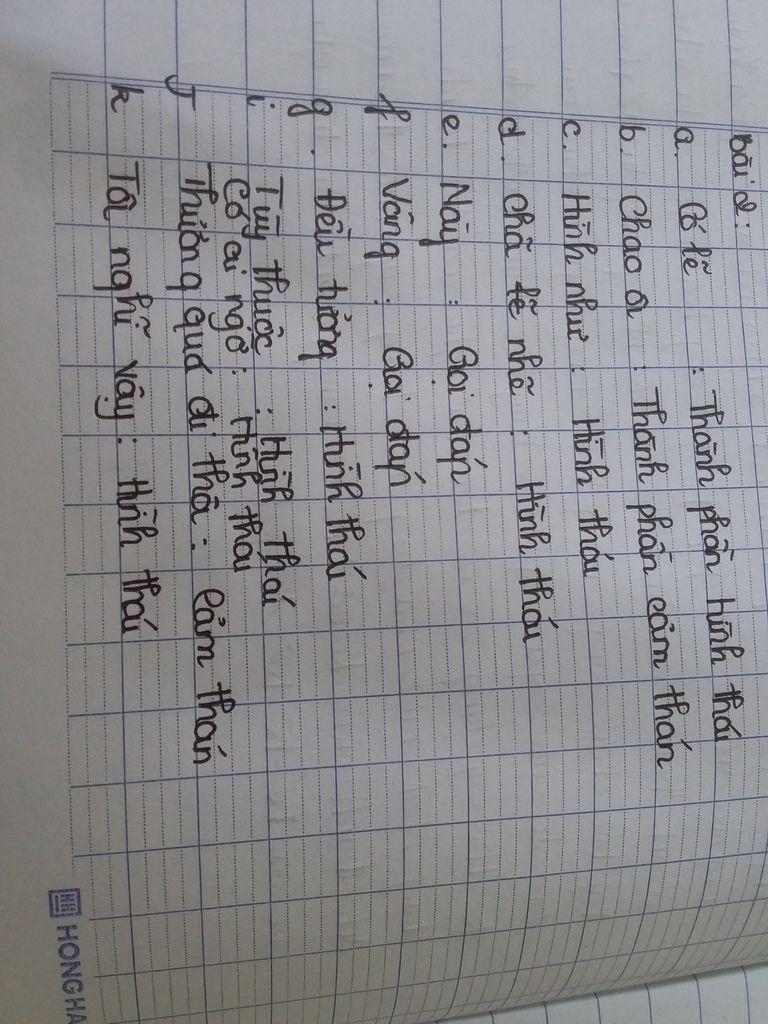 Bài 2:
a. Có lẽ : Thành phần hình thái
b. Chao ôi : Thành phần cảm thán
c. Hình như : Hình thái
d. Chã lẽ nhẽ : Hình thái
e. Này : Gọi đáp
f Vâng : Gọi đáp
g. Đều tưởng : Hình thái
i Tùy thuộc : Hình thái
Có ai ngờ : Hình thái
J Thương quá đi thôi : Cảm thán
k Tôi nghĩ vậy : Hình thái
HONG HA